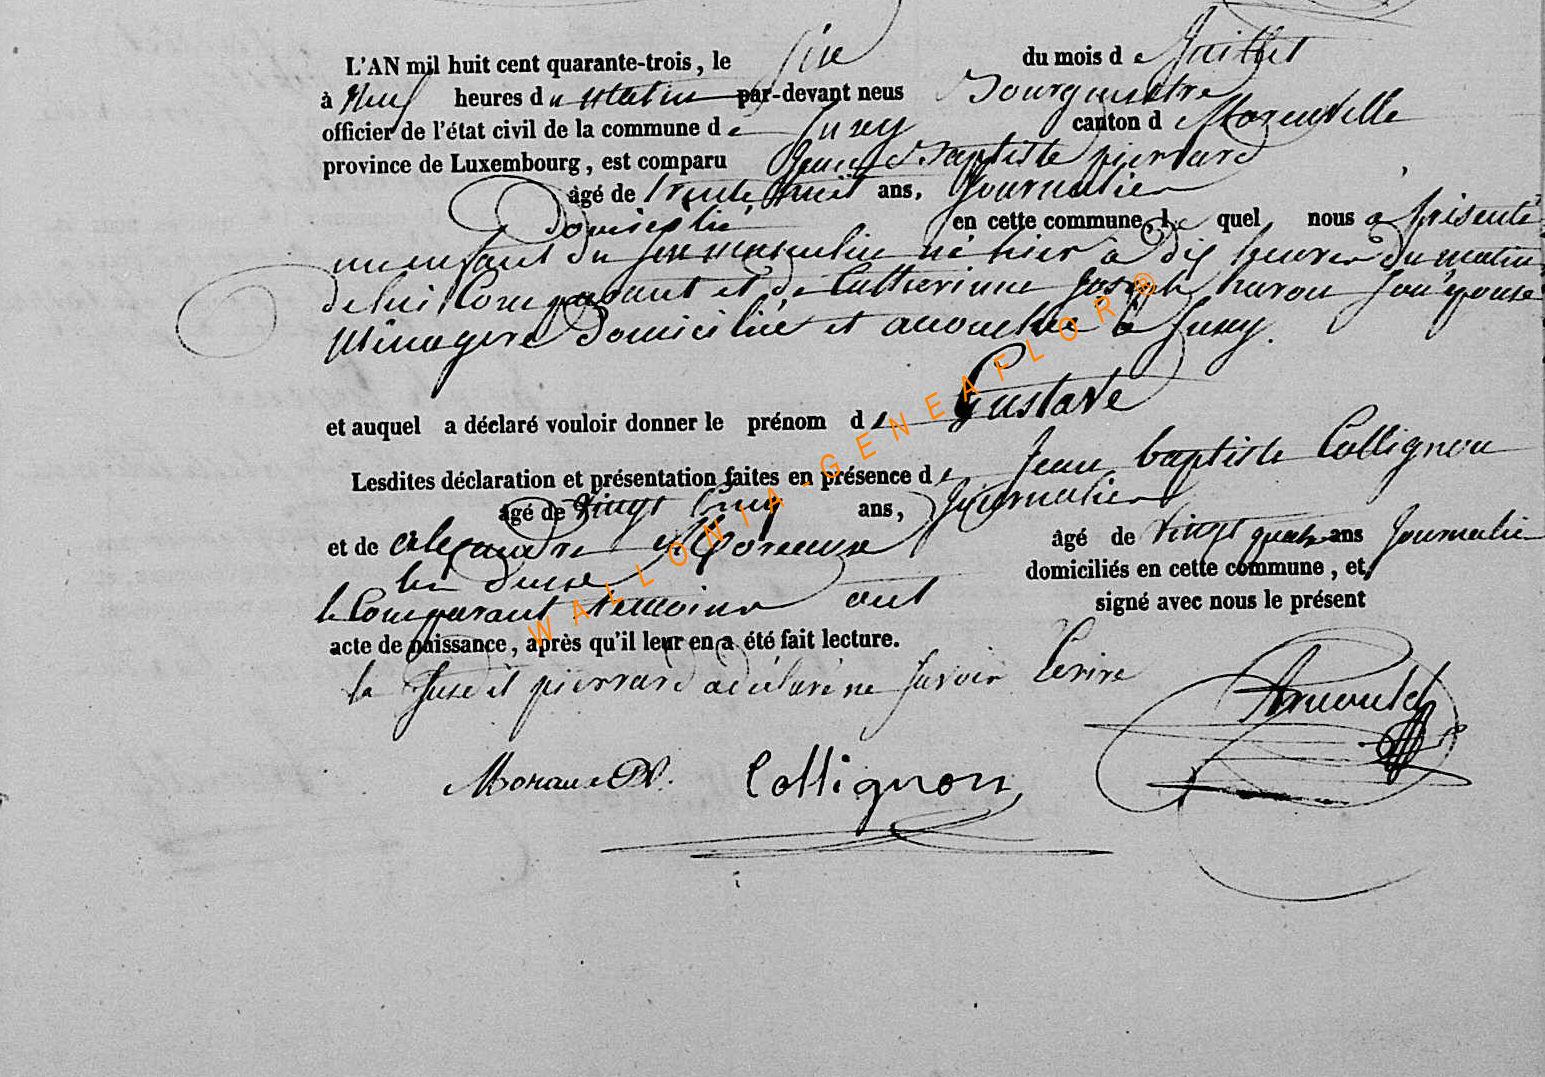 L'AN mil huit cent quarante-trois, le six du mois de Juillet
à Neuf heures du Matin par-devant nous Bourgmestre
officier de l'état civil de la commune de Jusey canton de
province de Luxembourg, est comparu Jean Baptiste pierrard
âgé de trente huit ans, Journalier
Domicilié en cette commune, lequel nous à présenté
un enfant du sexe masculin né hier à dix heures du matin
de lui Comparant et de Catherinne Joseph haron son épouse
Ménagere Domiciliée et accouchée à Jusey.
et auquel a déclaré vouloir donner le prénom de Gustave
Lesdites déclaration et présentation faites en présence de Jean baptiste Collignon
âgé de vingt cinq ans, Journalier
et de alexandre âgé de vingt quatre ans Journalier
les deux domiciliés en cette commune, et
le Comparant temoins ont signé avec nous le présent
acte de naissance, après qu'il leur en a été fait lecture.
le pierrard a déclaré ne savoir Ecrire
Collignon
WALLONIA-GENEAFLOR®